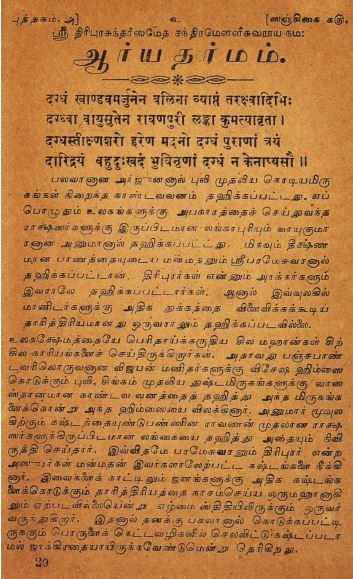 புத்தகம். அ] உ [ஸஞ்சிகை கடு.
ஸ்ரீ திரிபுரஸுந்தரீஸமேத சந்திரமௌளீசுவராய நம:
ஆர்யதர்மம்.
दग्धं खाण्डवमर्जुनेन वलिना व्याप्तं तरक्ष्वादिभिः
दग्ध्वा वायुसुतेन रावणपुरी लङ्का कुमत्यावृता।
दग्धस्तीक्ष्णशरो हरेण मदनो दग्धं पुराणां त्रयं
दारिद्र्यं वहुदुःखदं भुविनृणां दग्धं न केनाप्यसौ॥
பலவானான அர்ஜுனனால் புலி முதலிய கொடியமிரு
கங்கள் நிறைந்த காண்டவவனம் தஹிக்கப்பட்டது. எப்
பொழுதும் உலகங்களுக்கு அபகாரத்தைச் செய்துவந்த
ராக்ஷஸர்களுக்கு இருப்பிடமான லங்காபுரியும் வாயுகுமா
ரனான அனுமானால் தஹிக்கப்பட்டது. மிகவும் தீக்ஷண
மான பாணத்தையுடைய மன்மதனும் ஸ்ரீபரமேசுவரனால்
தஹிக்கப்பட்டான். திரிபுரர்கள் என்னும் அரக்கர்களும்
இவராலே தஹிக்கப்பட்டார்கள். ஆனால் இவ்வுலகில்
மானிடர்களுக்கு அதிக துக்கத்தை விளைவிக்கக்கூடிய
தாரித்திரியமானது ஒருவராலும் தஹிக்கப்படவில்லை.
உலகக்ஷேமத்தையே பெரிதாய்க்கருதிய சில மஹான்கள் கிற்
சில காரியங்களைச் செய்திருக்கிறார்கள். அதாவது பஞ்சபாண்
டவரிலொருவனான விஜயன் மனிதர்களுக்கு விசேஷ ஹிம்ஸை
கொடுக்கும் புலி, சிங்கம் முதலிய துஷ்டமிருகங்களுக்கு வாஸ
ஸ்தானமான காண்டவ வனத்தைத் தஹித்து அந்த மிருகங்க
ளைக்கொன்று அந்த ஹிம்ஸையை விலக்கினார். அனுமார் மூவுல
கிற்கும் கஷ்டத்தையுண்டுபண்ணின ராவணன் முதலான ராக்ஷ
ஸர்களுக்கிருப்பிடமான லங்கையைத் தஹித்து அதையும் நிவி
ருத்தி செய்தார். இவ்விதமே பரமேசுவரானும் திரிபுரர் என்ற
அஸுரர்கள் மன்மதன் இவர்களாலேற்பட்ட கஷ்டங்களை நீக்கி
னார். இவைகளைக் காட்டிலும் ஜனங்களுக்கு அதிக கஷ்டங்க
ளைக்கொடுக்கும் தாரித்திரியத்தை நாசம்செய்ய ஒருமஹானாகி
லும் ஏற்படவில்லையென்று எழ்மை ஸ்திதியிலிருக்கும் ஒருவர்
வருந்துகிறார். இதனால் தனக்கு பகவானால் கொடுக்கப்பட்டி
ருக்கும் பொருளைக் கெட்டவழிகளில் செலவிட்டுகஷ்டப்படா
மல் ஜாக்கிரதையாயிருக்கவேண்டுமென்று தெரிகிறது.
29